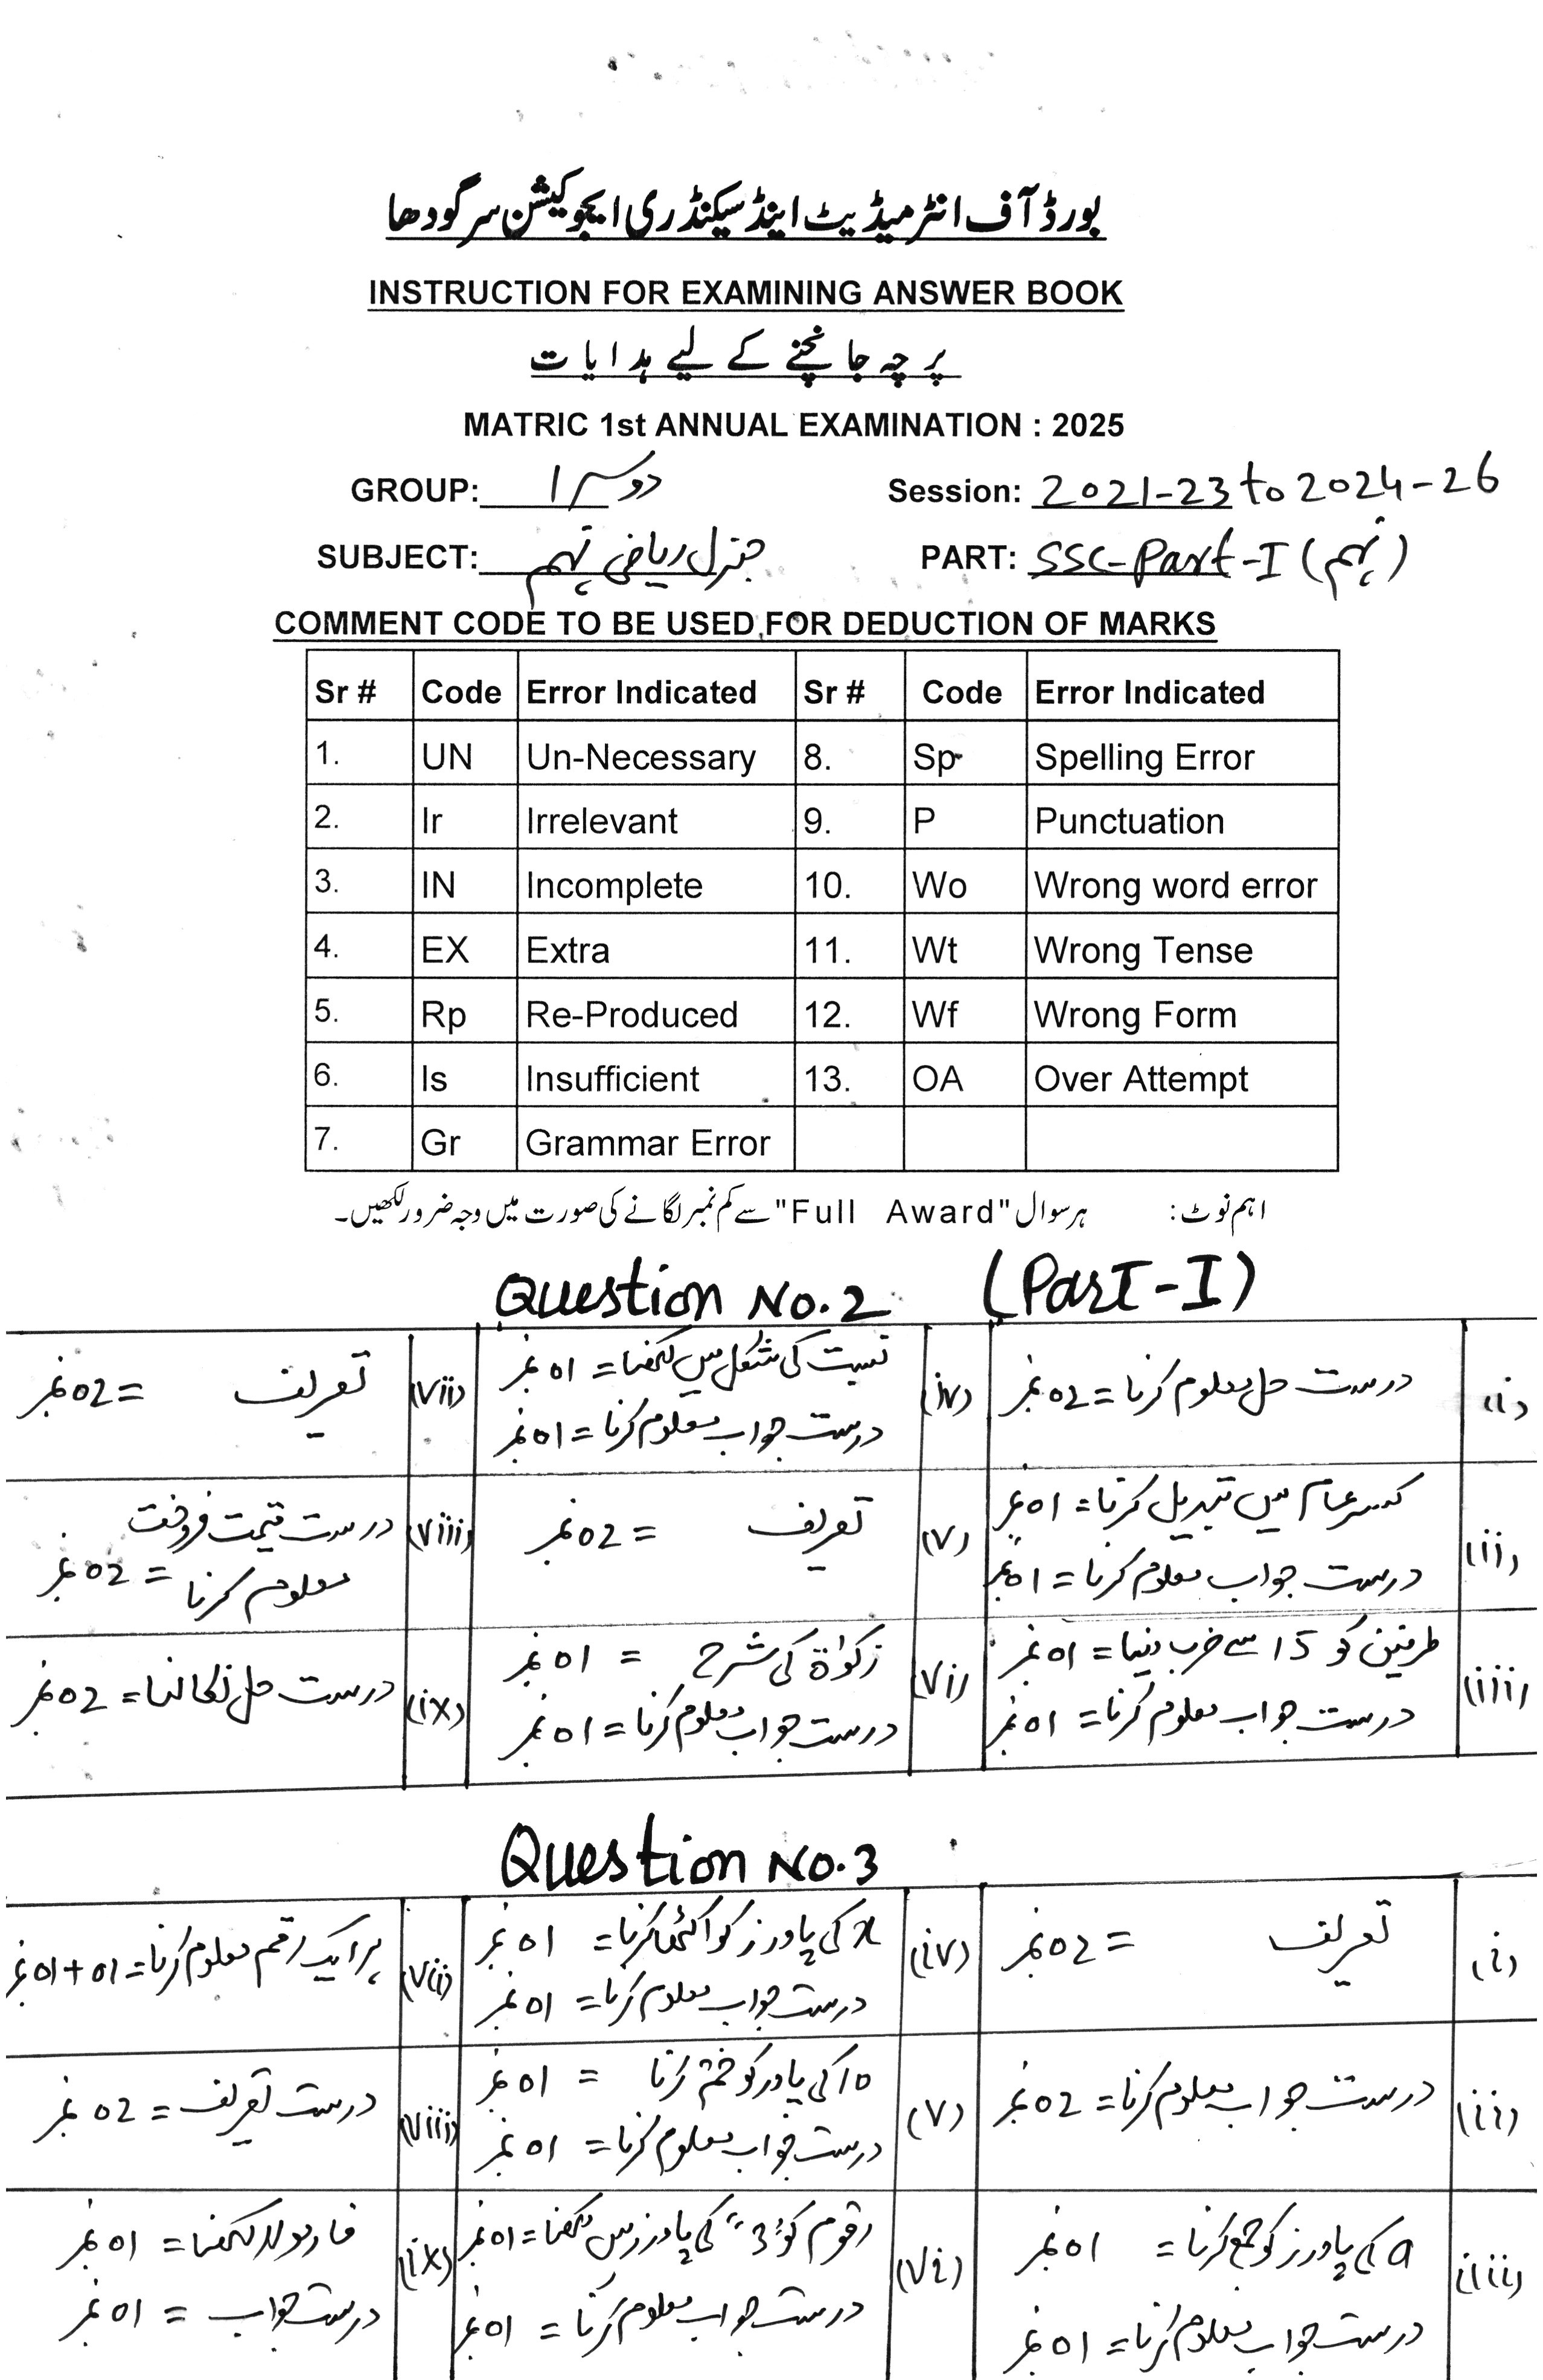 بورڈ آف انٹرمیڈیٹ اینڈ سیکنڈری ایجوکیشن سرگودھا
INSTRUCTION FOR EXAMINING ANSWER BOOK
پرچہ جانچنے کے لیے ہدایات
MATRIC 1st ANNUAL EXAMINATION : 2025
GROUP: دوسرا Session: 2021-23 to 2024-26
SUBJECT: جنرل ریاضی نہم PART: SSC-Part-I (نہم)
COMMENT CODE TO BE USED FOR DEDUCTION OF MARKS
Sr # Code Error Indicated Sr # Code Error Indicated
1. UN Un-Necessary 8. Sp Spelling Error
2. Ir Irrelevant 9. P Punctuation
3. IN Incomplete 10. Wo Wrong word error
4. EX Extra 11. Wt Wrong Tense
5. Rp Re-Produced 12. Wf Wrong Form
6. Is Insufficient 13. OA Over Attempt
7. Gr Grammar Error
اہم نوٹ: ہر سوال "Full Award" سے کم نمبر لگانے کی صورت میں وجہ ضرور لکھیں۔
Question No.2 (Part-I)
(i) درست حل معلوم کرنا = 02 نمبر
(iv) نسبت کی شکل میں لکھنا = 01 نمبر
درست جواب معلوم کرنا = 01 نمبر
(vii) تعریف = 02 نمبر
(ii) کسر عام میں تبدیل کرنا = 01 نمبر
درست جواب معلوم کرنا = 01 نمبر
(v) تعریف = 02 نمبر
(viii) درست قیمت فروخت
معلوم کرنا = 02 نمبر
(iii) طرفین کو 15 سے ضرب دینا = 01 نمبر
درست جواب معلوم کرنا = 01 نمبر
(vi) زکوٰۃ کی شرح = 01 نمبر
درست جواب معلوم کرنا = 01 نمبر
(ix) درست حل نکالنا = 02 نمبر
Question No.3
(i) تعریف = 02 نمبر
(iv) x کی پاورز کو اکٹھا کرنا = 01 نمبر
درست جواب معلوم کرنا = 01 نمبر
(vii) ہر ایک رقم معلوم کرنا = 01+01 نمبر
(ii) درست جواب معلوم کرنا = 02 نمبر
(v) 10 کی پاور کو ختم کرنا = 01 نمبر
درست جواب معلوم کرنا = 01 نمبر
(viii) درست تعریف = 02 نمبر
(iii) a کی پاورز کو جمع کرنا = 01 نمبر
درست جواب معلوم کرنا = 01 نمبر
(vi) رقوم کو "3" کی پاورز میں لکھنا = 01 نمبر
درست جواب معلوم کرنا = 01 نمبر
(ix) فارمولا لکھنا = 01 نمبر
درست جواب = 01 نمبر